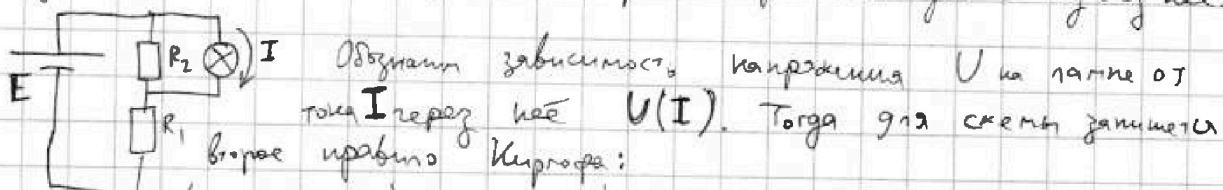 R₂ I Обозначим зависимость напряжения U на лампе от
E тока I через неё U(I). Тогда для схемы запишется
R₁ второе правило Кирхгофа: